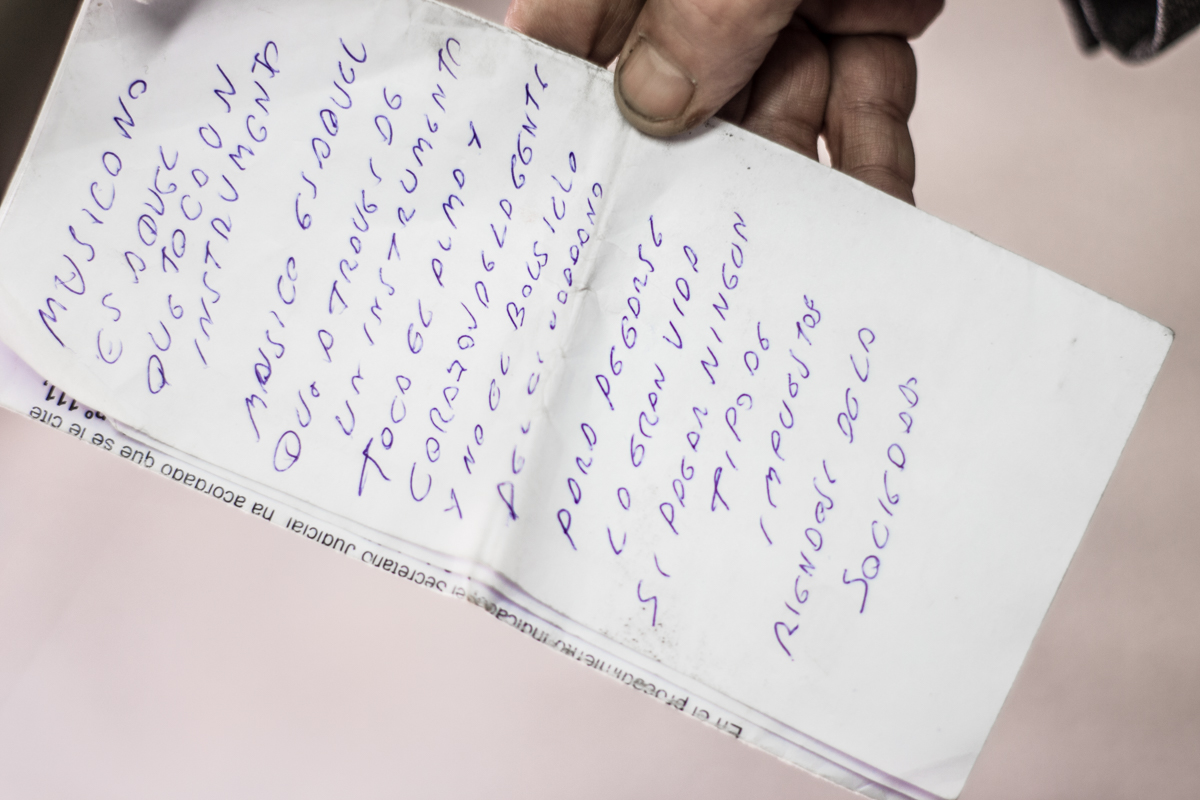 MUSICO NO
ES AQUEL
QUE TOCA UN
INSTRUMENTO
MUSICO ES AQUEL
QUE A TRAVES DE
UN INSTRUMENTO
TOCA EL ALMA Y
CORAZON DE LA GENTE
Y NO EL BOLSILLO
DEL CIUDADANO
PARA PEGARSE
LA GRAN VIDA
SI PAGAR NINGUN
TIPO DE
IMPUESTOS
RIENDOSE DE LA
SOCIEDAD
En el procedimiento indicado, el Secretario Judicial ha acordado que se le cite
nº 111.